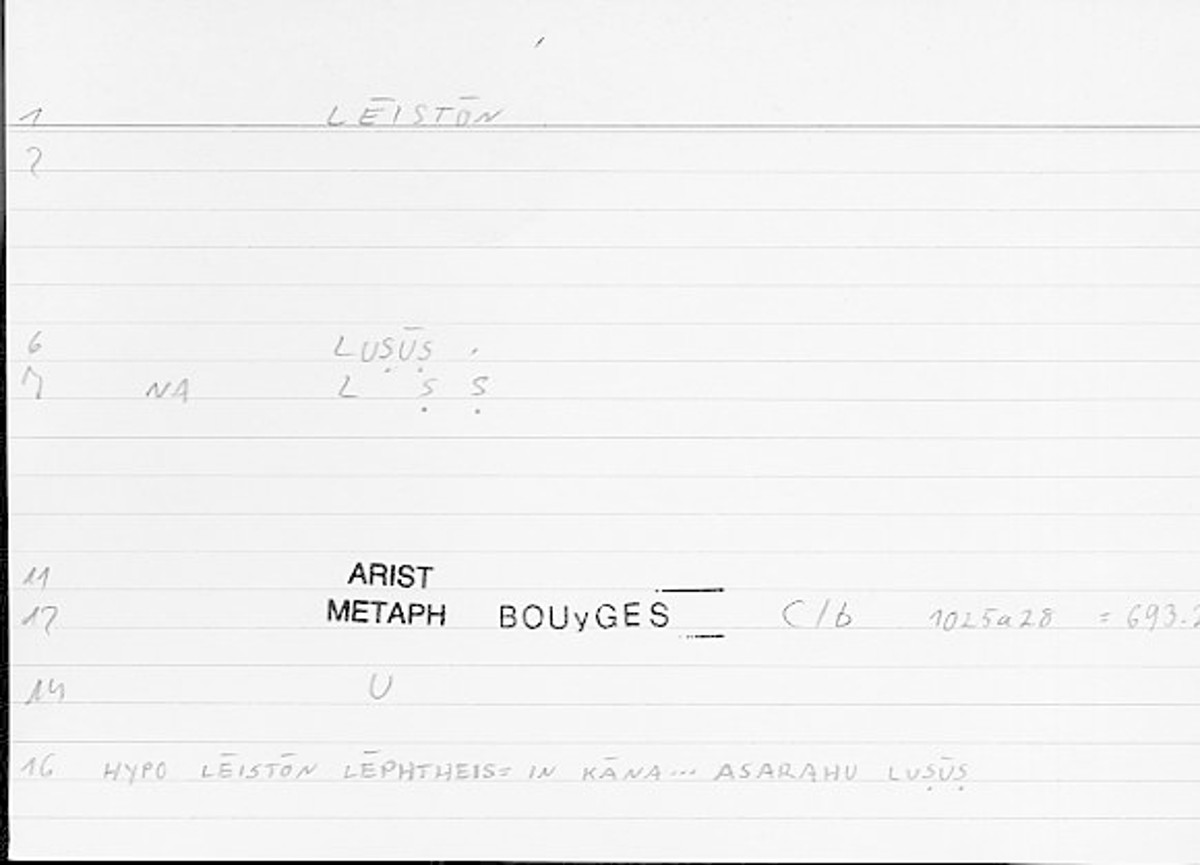 1 LĒISTŌN
2
6 LUṢŪṢ
7 NA L Ṣ Ṣ
11 ARIST
12 METAPH BOUyGES C/b 1025a28 = 693.2
14 U
16 HYPO LĒISTŌN LĒPHTHEIS= IN KĀNA... ASARAHU LUṢŪṢ